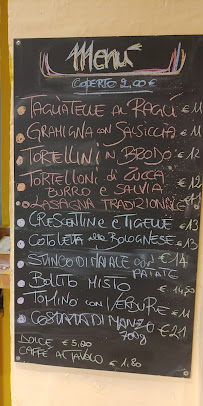 Menú
COPERTO 2,00 €
TAGLIATELLE AL RAGÙ € 11
GRAMIGNA CON SALSICCIA € 11
TORTELLINI IN BRODO € 12
TORTELLONI di ZUCCA
BURRO E SALVIA € 12
LASAGNA TRADIZIONALE
CRESCENTINE E TIGELLE € 13
COTOLETTA alla BOLOGNESE € 13
STINCO DI MAIALE con € 14
PATATE
BOLLITO MISTO € 14,50
TOMINO CON VERDURE € 11
COSTATA DI MANZO € 21
700g
DOLCE € 5,00
CAFFE AL TAVOLO € 1,80